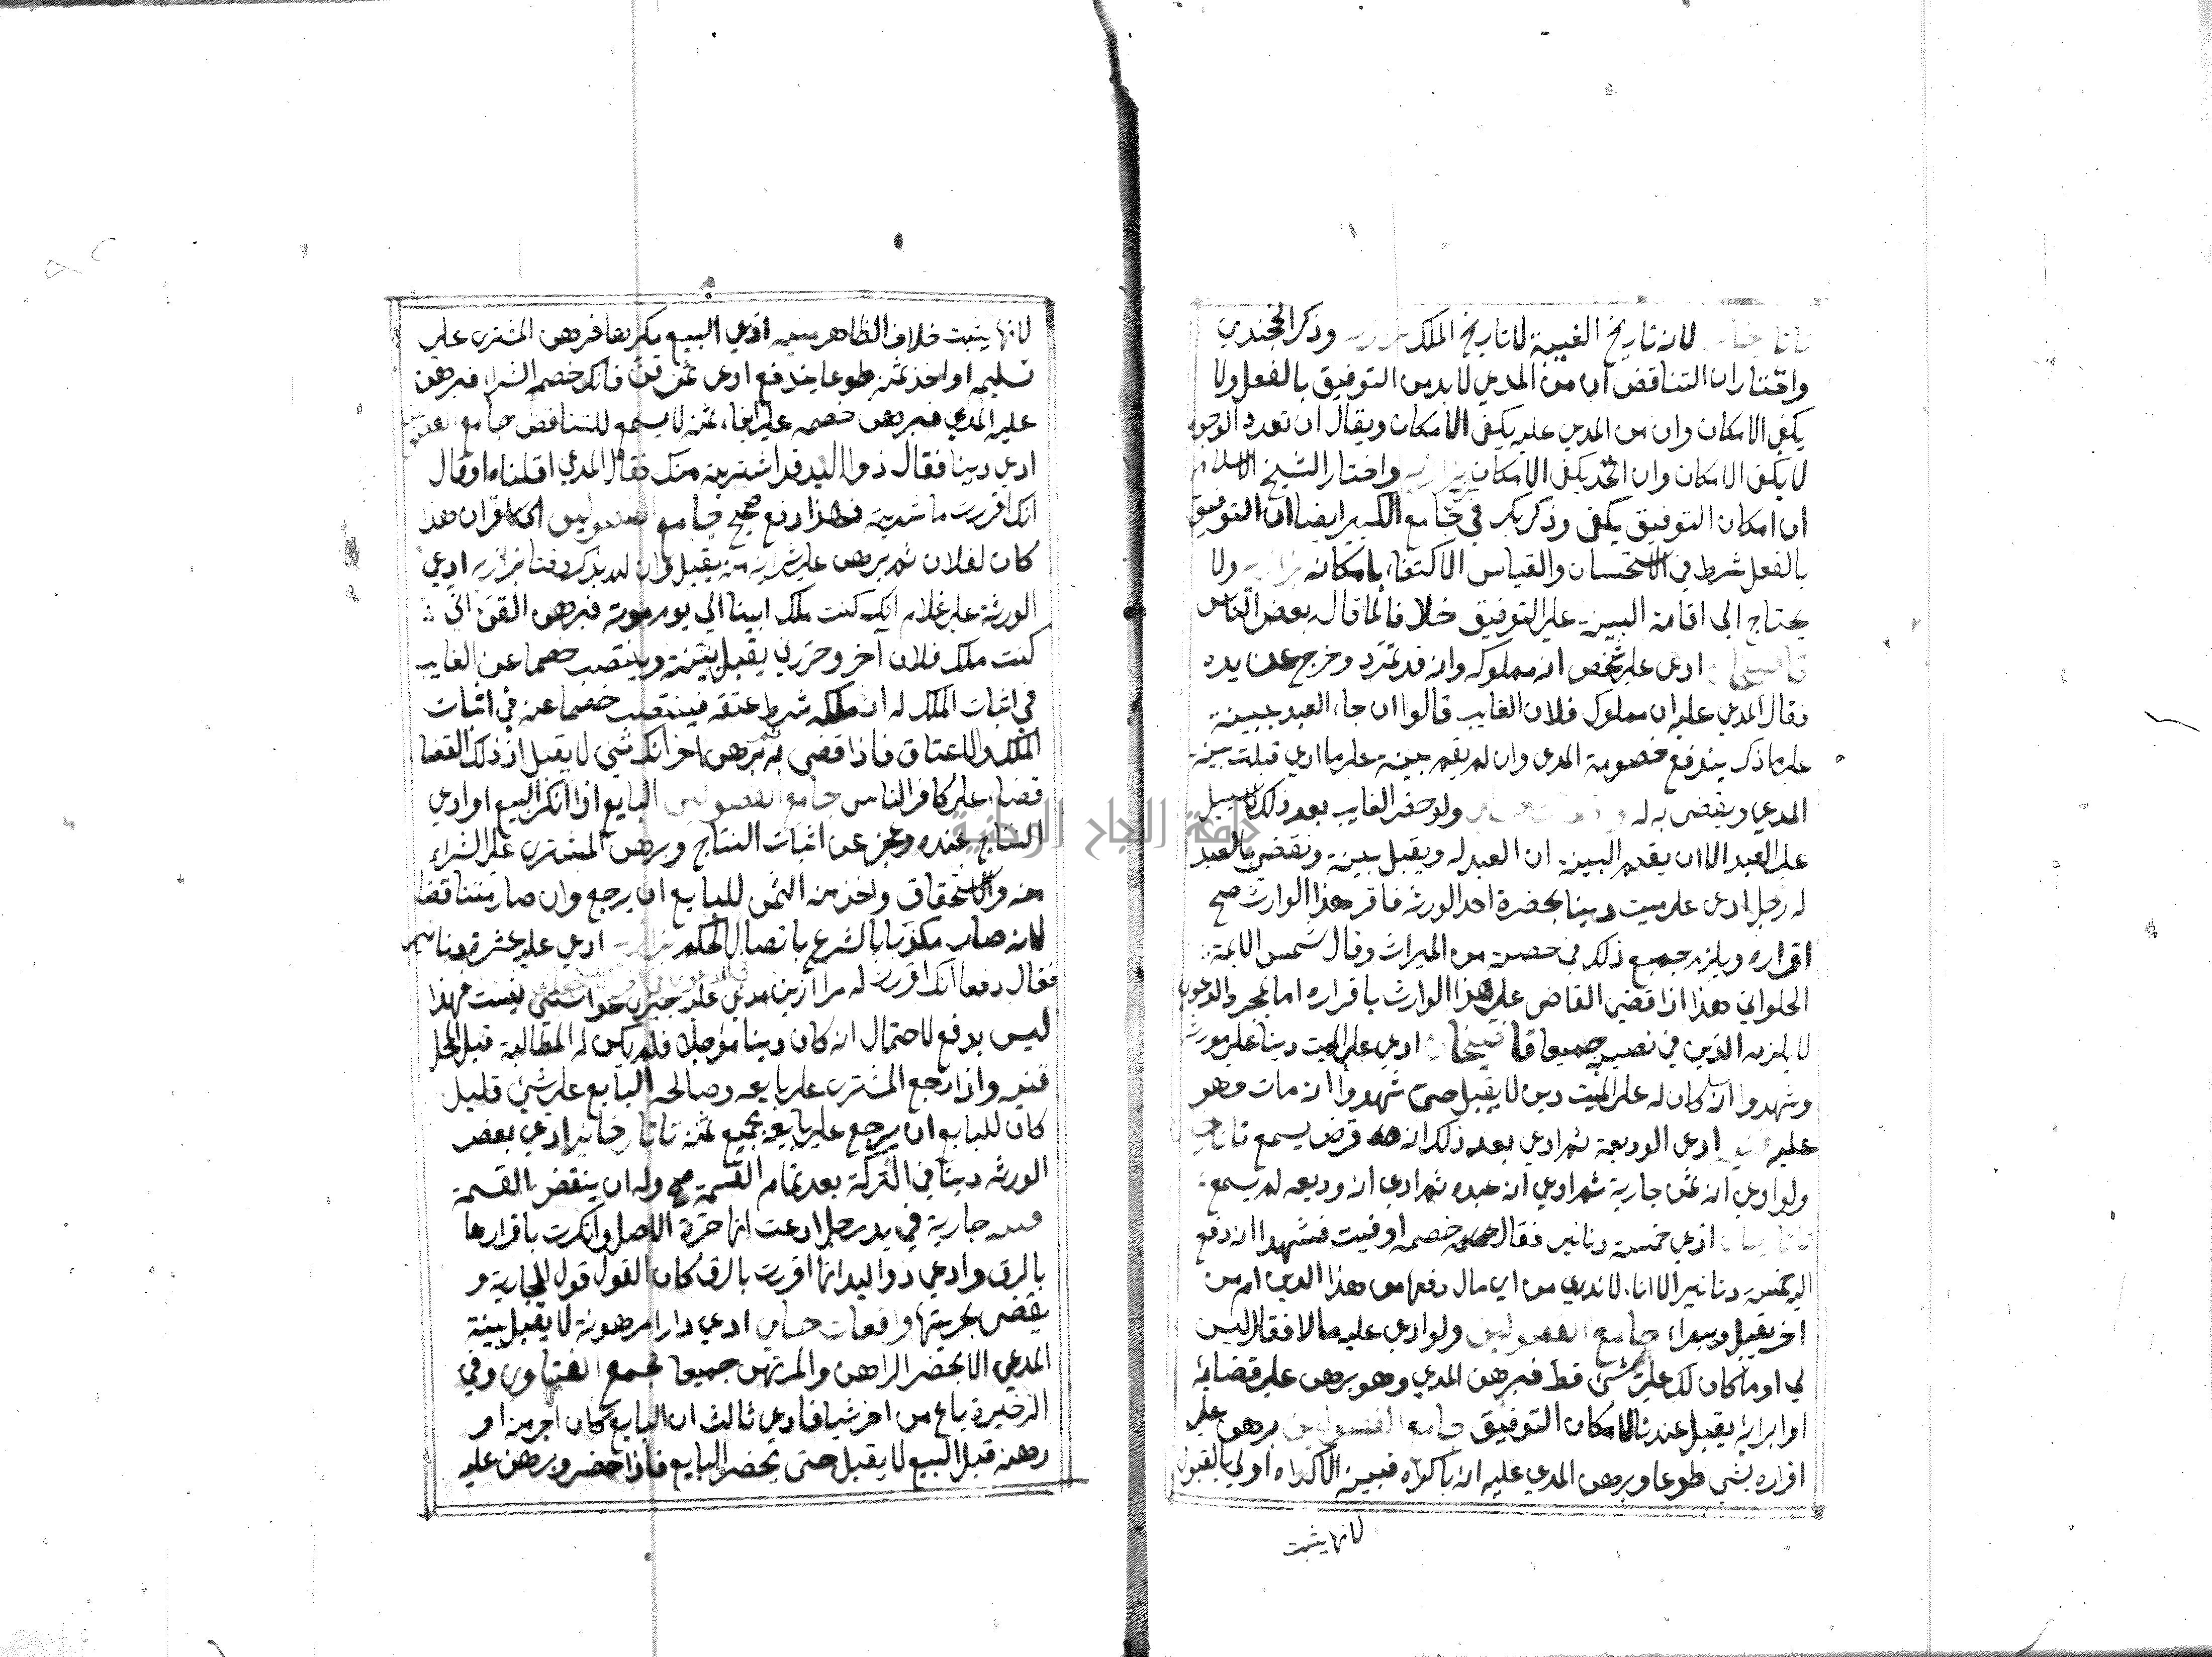 لانه تاريخ الغيبة لا تاريخ الملك وذكر الخجندي
واختار ان التناقض ان من المدعي لا بد من التوفيق بالفعل ولا
يكفي الامكان وان من المدعي عليه يكفي الامكان ويقال ان تعدد الوجوه
لا يكفي الامكان وان اتحد يكفي الامكان بزازيه واختار الشيخ الاسلام
ان امكان التوفيق يكفي وذكر بكر في جامع الكبير ايضا ان التوفيق
بالفعل شرط في الاستحسان والقياس الاكتفاء بامكانه بزازيه ولا
يحتاج الي اقامة البينة علي التوفيق خلافا لما قال بعض الناس
قاضيخان ادعي علي شخص انه مملوكه وانه قد تمرد وخرج عن يده
فقال المدعي عليه ان مملوك فلان الغايب قالوا ان جاء العبد ببينة
علي ما ذكر يندفع خصومة المدعي وان لم يقم بينة علي ما ادعي قبلت بينة
المدعي ويقضي به له ولو حضر الغايب بعد ذلك لا سبيل
علي العبد الا ان يقدم البينة ان العبد له ويقبل بينة ونقضي بالعبد
له رجل ادعي علي ميت دينا بحضرة احد الورثة فاقر هذا الوارث صح
اقراره ويلزمه جميع ذلك في حصته من الميراث وقال شمس الايمة
الحلواني هذا اذا قضي القاضي علي هذا الوارث باقراره اما بمجرد الدعوي
لا يلزمه الدين في نصيبه جميعا قاضيخان ادعي علي الميت دينا علي مورثه
وشهدوا انه كان له علي الميت دين لا يقبل حتي شهدوا انه مات وهو
عليه ادعي الوديعة ثم ادعي بعد ذلك انه قرض يسمع تاتارخان
ولو ادعي انه ثمن جارية ثم ادعي انه عبده ثم ادعي انه وديعه لم يسمع
ادعي خمسة دنانير فقال خصمه اوفيت فشهدا انه دفع
اليه خمسة دنانير الا انا لا ندري من اي مال دفعها من هذا الدين ام من
اخر يقبل ويبراء جامع الفصولين ولو ادعي عليه مالا فقال ليس
لي او ما كان لك علي شئ قط فبرهن المدعي وهو برهن علي قضايه
او ابرايه يقبل عندنا لامكان التوفيق جامع الفصولين برهن علي
اقراره بشي طوعا وبرهن المدعي عليه انه باكراه فبينة الاكراه اولي بالقبول
لانها يثبت
لانها يثبت خلاف الظاهر ادعي البيع مكرها فبرهن المشتري علي
تسليمه او اخذ ثمنه طوعا يندفع ادعي ثمن قن فانكر خصمه الشراء فبرهن
عليه المدعي فبرهن خصمه علي ايفاء ثمنه لا يسمع للتناقض جامع الفصولين
ادعي دينا فقال ذو اليد قد اشتريته منك فقال المدعي اقلناه او قال
انك اقررت ما شريته فهذا دفع صحيح جامع الفصولين اقر ان هذا
كان لفلان ثم برهن علي شرايه منه يقبل وان لم يذكر وقتا بزازيه ادعي
الورثة علي غلام انك كنت ملك ابينا الي يوم موته فبرهن القن اني
كنت ملك فلان آخر وحررني يقبل بينته وينتصب خصما عن الغايب
في اثبات الملك له ان ملكه شرط عتقه فينتصب خصما عنه في اثبات
الملك والاعتاق فاذا قضي به ثم برهن اخر انك قني لا يقبل اذ ذلك القضا
قضاء علي كافة الناس جامع الفصولين البايع اذا انكر البيع او ادعي
النتاج عنده وعجز عن اثبات النتاج وبرهن المشتري علي الشراء
منه والاستحقاق واخذ منه الثمن للبايع ان يرجع وان صار متناقضا
لانه صار مكذبا بالشرع باتصال الحكم بزازيه ادعي عليه عشرة دنانير
فقال دفعا انك اقررت له مرا ازين مدعي عليه جيزي خواستني نيست فهذا
ليس بدفع لاحتمال انه كان دينا مؤجلا فلم يكن له المطالبة قبل الحل
قنيه واذا رجع المشتري علي بايعه وصالحه البايع علي شئ قليل
كان للبايع ان يرجع علي بايعه بجميع ثمنه تاتارخانيه ادعي بعض
الورثه دينا في التركة بعد تمام القسمة صح وله ان ينقض القسمة
جارية في يد رجل ادعت انها حرة الاصل وانكرت باقرارها
بالرق وادعي ذو اليد انها اقررت بالرق كان القول قول للجارية و
يقضي بحريتها واقعات حسامي ادعي دارا مرهونة لا يقبل بينة
المدعي الا بحضر الراهن والمرتهن جميعا مجمع الفتاوي وفي
الذخيرة باع من اخر شيا فادعي ثالث ان البايع كان آجر منه او
رهنه قبل البيع لا يقبل حتي يحضر البايع فاذا حضر وبرهن عليه
جامعة النجاح الوطنية